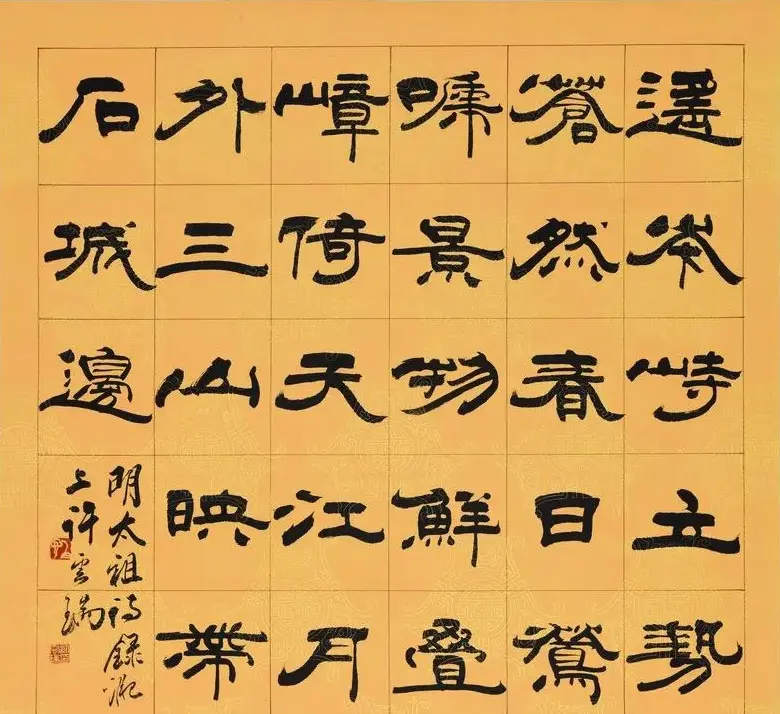 遙岑峙立勢
蒼然春日鶯
啼景物鮮叠
嶂倚天江月
外三山映帶
石城邊
明太祖詩錄淝
上許雲瑞